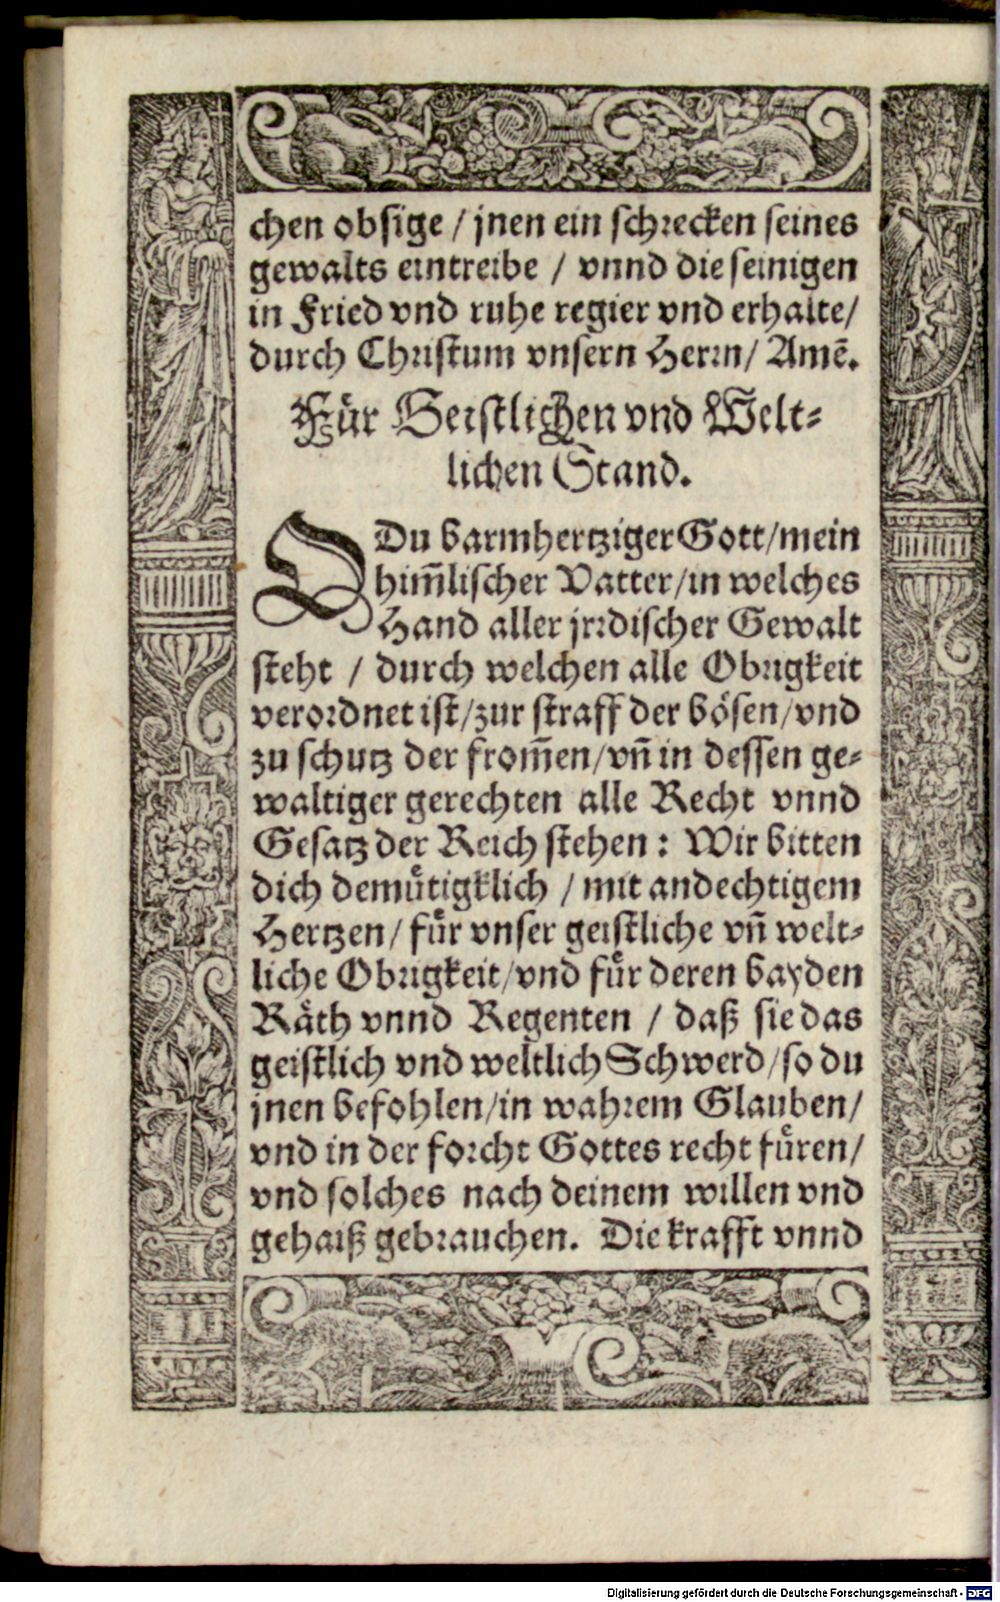 chen obsige / jnen ein schrecken seines
gewalts eintreibe / vnnd die seinigen
in Fried vnd ruhe regier vnd erhalte/
durch Christum vnsern Herrn/ Amẽ.
Für Geistlichen vnd Welt-
lichen Stand.
O Du barmhertziger Gott/mein
him̃lischer Vatter/in welches
Hand aller jrrdischer Gewalt
steht / durch welchen alle Obrigkeit
verordnet ist/zur straff der bösen/vnd
zu schutz der from̃en/vñ in dessen ge-
waltiger gerechten alle Recht vnnd
Gesatz der Reich stehen: Wir bitten
dich demütigklich / mit andechtigem
Hertzen/ für vnser geistliche vñ welt-
liche Obrigkeit/vnd für deren bayden
Räth vnnd Regenten / daß sie das
geistlich vnd weltlich Schwerd/so du
jnen befohlen/in wahrem Glauben/
vnd in der forcht Gottes recht füren/
vnd solches nach deinem willen vnd
gehaiß gebrauchen. Die krafft vnnd
Digitalisierung gefördert durch die Deutsche Forschungsgemeinschaft - DFG